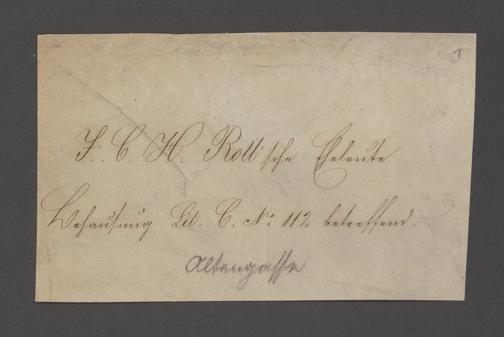 F. C. H. Roll'sche Eheleute
Behausung Lit. C. No. 112 betreffend.
Altengasse